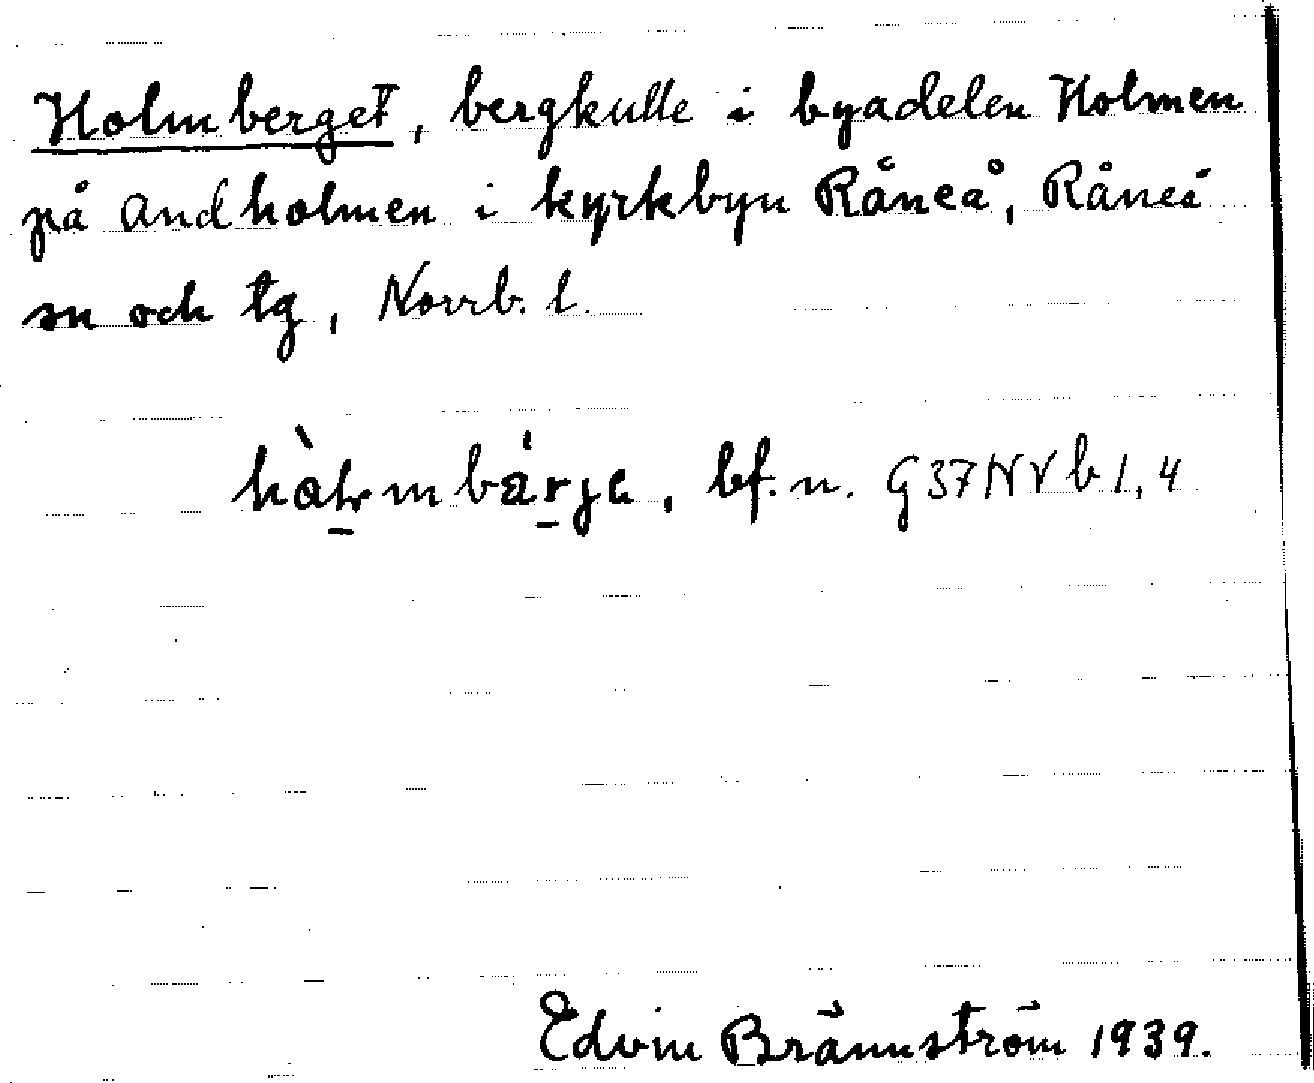 Holmberget, bergkulle i byadelen Holmen
på Andholmen i kyrkbyn Råneå, Råneå
sn och tg, Norrb. l.
bf. n. G37NVb 1,4
Edvin Brännström 1939.